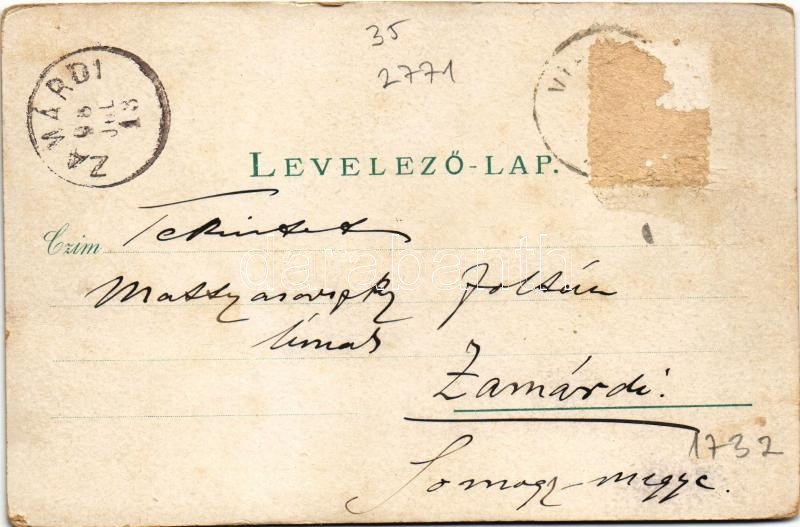 35
2771
ZAMÁRDI
98
JUL
13
VI
LEVELEZŐ-LAP.
Czim
Tekintetes
Mattyasovszky Zoltán
Úrnak
Zamárdi.
1732
Somogy-megye.
darabanth